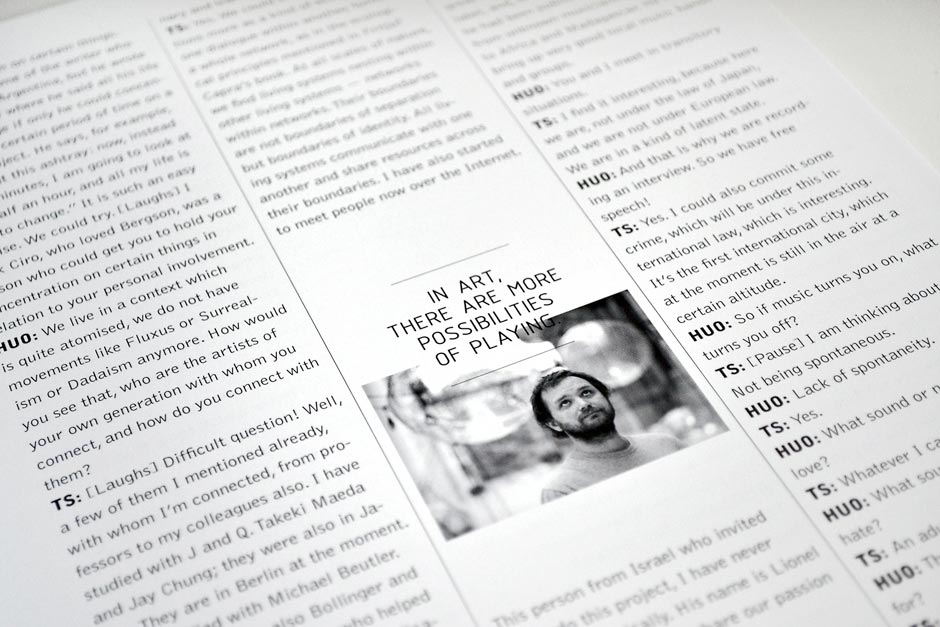 on certain things,
of the writer who
Argentina, but he wrote
where he said all his life
if only he could concen-
certain period of time on a
ject. He says, for example,
at this ashtray: now, instead
minutes, I am going to look at
alf an hour, and all my life is
to change." It is such an easy
se. We could try. [Laughs] I
k Ciro, who loved Bergson, was a
son who could get you to hold your
ncentration on certain things in
elation to your personal involvement.
HUO: We live in a context which
is quite atomised, we do not have
movements like Fluxus or Surreal-
ism or Dadaism anymore. How would
you see that, who are the artists of
your own generation with whom you
connect, and how do you connect with
them?
TS: [Laughs] Difficult question! Well,
a few of them I mentioned already,
with whom I'm connected, from pro-
fessors to my colleagues also. I have
studied with J and Q. Takeki Maeda
and Jay Chung; they were also in Ja-
They are in Berlin at the moment.
ied with Michael Beutler.
also Bollinger and
who helped
TS: Yes. We could
tions more as a kind of
one dialogue within another
a whole network, as in the ecologi-
cal principles mentioned in Fritjof
Capra's book. At all scales of nature,
we find living systems nesting within
other living systems — networks
within networks. Their boundaries
are not boundaries of separation
but boundaries of identity. All liv-
ing systems communicate with one
another and share resources across
their boundaries. I have also started
to meet people now over the Internet.
IN ART,
THERE ARE MORE
POSSIBILITIES
OF PLAYING.
This person from Israel who invited
do this project, I have never
ically. His name is Lionel
are our passion
in Africa and Madagascar
bring up very good local music bands
and groups.
HUO: You and I meet in transitory
situations.
TS: I find it interesting, because here
we are, not under the law of Japan,
and we are not under European law.
We are in a kind of latent state.
HUO: And that is why we are record-
ing an interview. So we have free
speech!
TS: Yes. I could also commit some
crime, which will be under this in-
ternational law, which is interesting.
It's the first international city, which
at the moment is still in the air at a
certain altitude.
HUO: So if music turns you on, what
turns you off?
TS: [Pause] I am thinking about
Not being spontaneous.
HUO: Lack of spontaneity.
TS: Yes.
HUO: What sound or n
love?
TS: Whatever I ca
HUO: What sou
hate?
TS: An adv
HUO: Th
for?
TS: